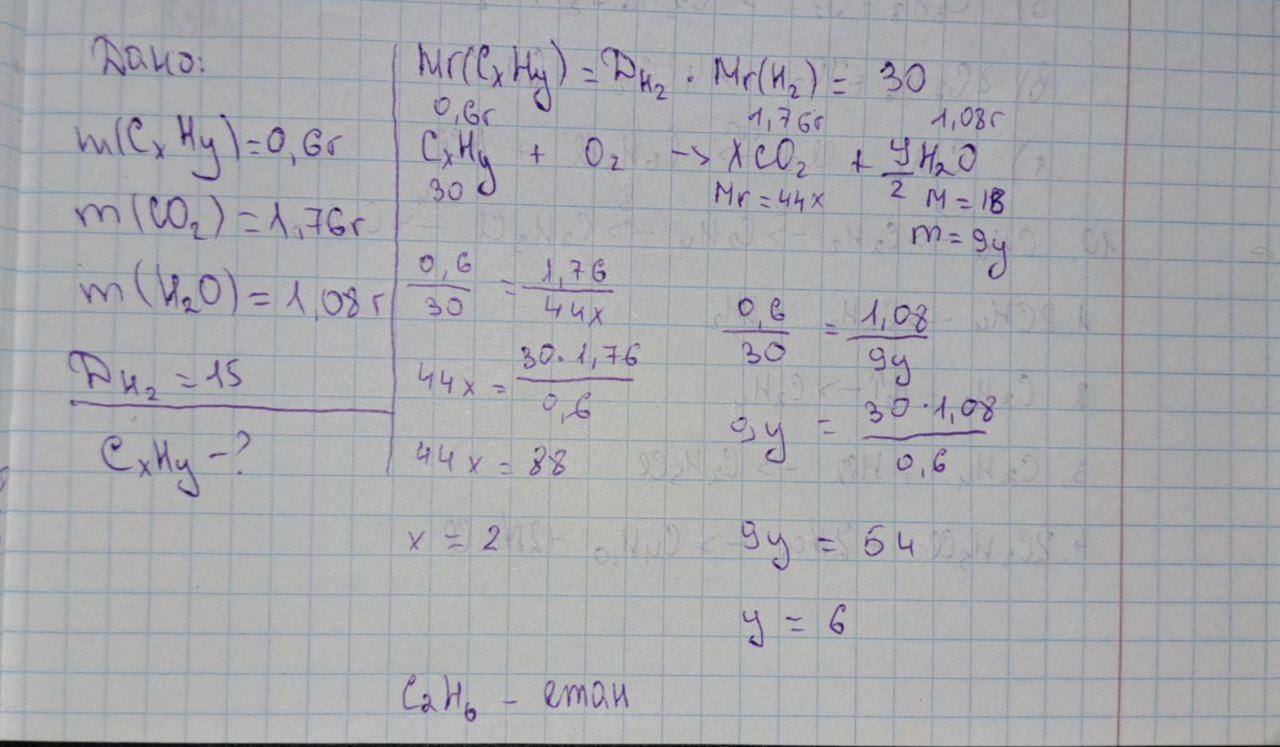 Дано:
m(CxHy)=0,6г
m(CO2)=1,76г
m(H2O)=1,08г
DH2=15
CxHy-?
Mr(CxHy)=DH2·Mr(H2)=30
0,6г 1,76г 1,08г
CxHy + O2 -> xCO2 + y/2 H2O
30 Mr=44x M=18
m=9y
0,6/30 = 1,76/44x
44x = 30·1,76/0,6
44x=88
x=2
0,6/30 = 1,08/9y
9y = 30·1,08/0,6
9y = 54
y = 6
C2H6 - етан